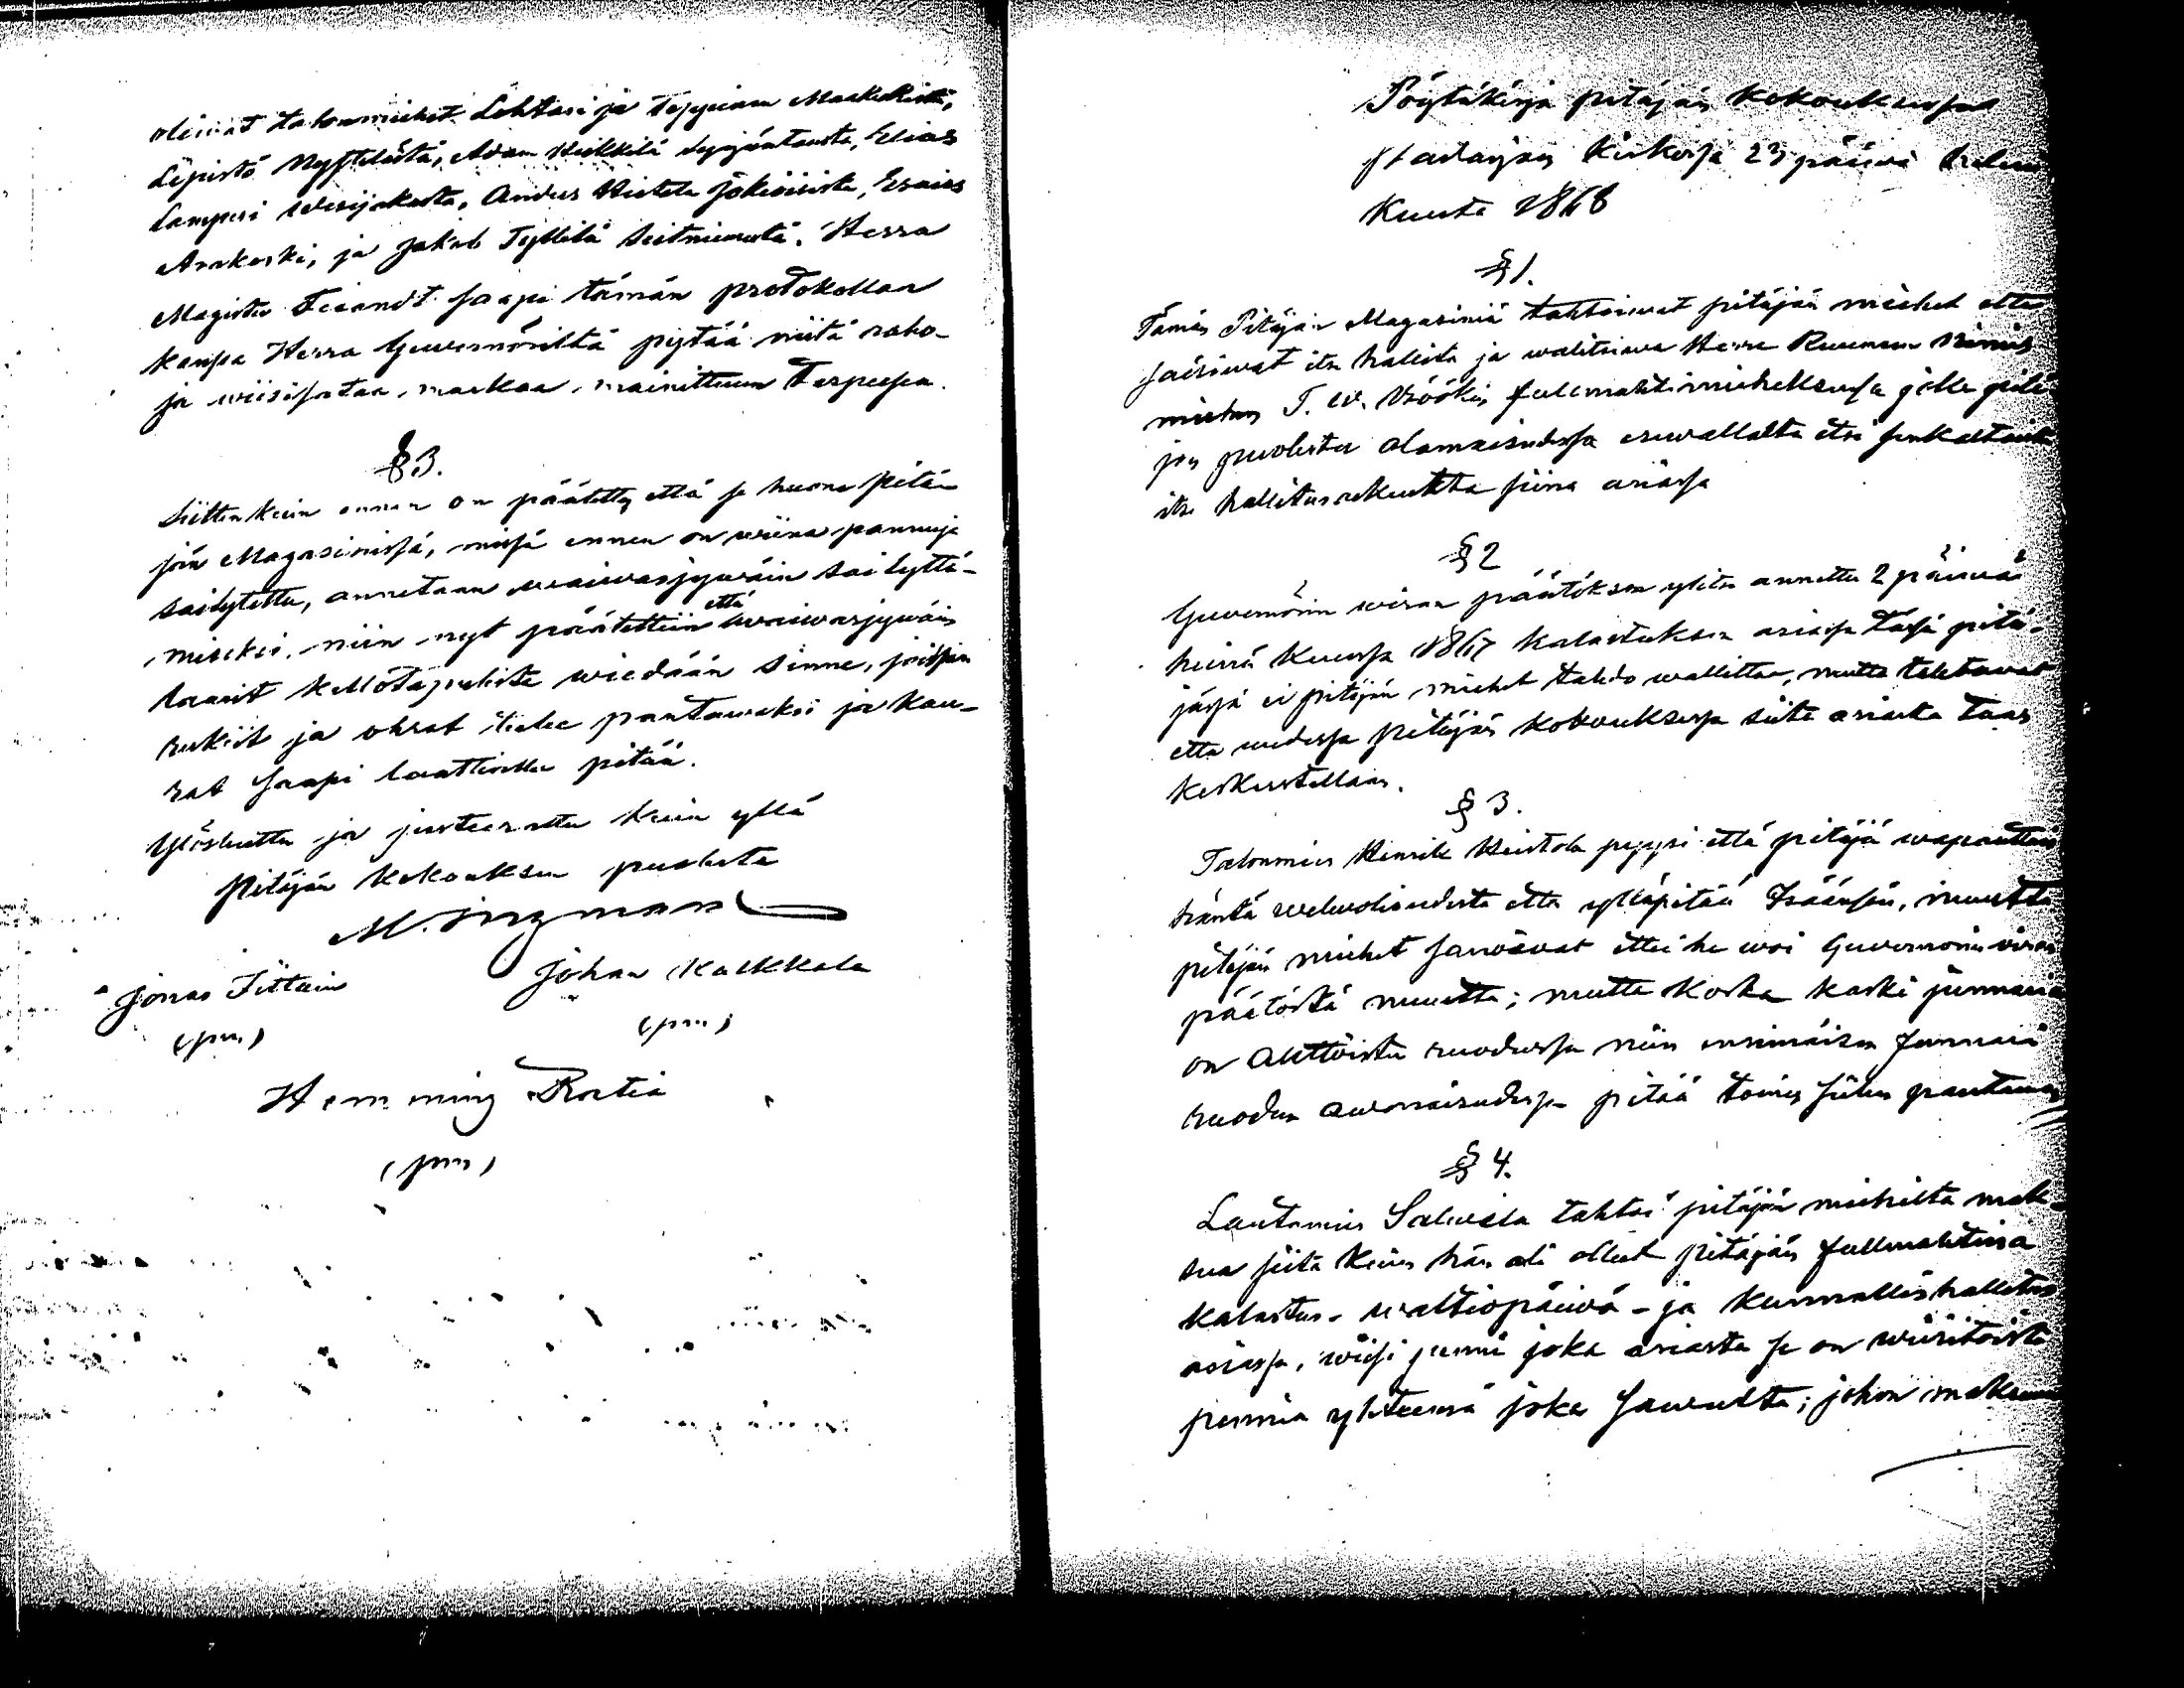 olewat talonmiehet Lehtari ja
Lepistö Adam Heikkilä Elias
Lamperi Anders Hietala Jokioisista, Esaias
ja Jakob Tyllilä Herra
Magister saapi tämän protokollan
kansa Herra Guvernöriltä pytää niitä raho-
ja wiisisataa markaa mainittuun Tarpeesen.
§3.
Siitten kuin ennen on päätetty että se huone pitä-
jän Magasinissä, missä ennen on wiina pannuja
sailytetty, annetaan waiwasjywäin sailyttä-
miseksi, niin nyt päätettiin että waiwasjywäin
laarit kellotapulista wiedään sinne, joihin
rukiit ja ohrat tulee pantawaksi ja kau-
rat saapi laattialla pitää.
Ylösluettu ja justeerattu kuin yllä
Pitäjän kokouksen puolesta
M. Ingman
Jonas Johan Kalkkala
(pm) (pm)
Hemming Ratia
(pm)
Pöytäkirja pitäjän kokouksessa
pitäjän kirkossa 23 päiwä helmi
kuuta 1868
§1.
Tämän Pitäjän Magasiniä tahtoiwat pitäjän miehet että
saisiwat itse hallita ja walitsiwa Herra Ruunun Nimis
miehen T. W. Höökin fullmahtimieheksensä jolle pitä
jän puolesta alamaisudessa esiwallalta etsi
itse hallitus oikeutta siina asiassa
§2
Guvernörin wiran päätöksen ylitse annettu 2 päiwä
heinä kuussa 1867 kalastuksen asiassa tässä pitä-
jässä ei pitäjän miehet tahdo wallittaa, mutta tahtowat
että uudessa pitäjän kokouksessa siitä asiasta taas
keskustellaan.
§3.
Talonmies Henrik Heistola pyysi että pitäjä wapauttaisi
häntä welwolisudesta että ylläpitää Isäänsän, mutta
pitäjän miehet sanoiwat ettei he woi Guvernörin wiran
päätöstä muutta; mutta koska kaski
on Alttoista ruodussa niin ensimäisen
ruodun awonaisudessa pitää toinen siihen pantaman
§4.
Lautamies Saluela tahtoi pitäjän miehiltä mak-
sua siitä kuin hän oli ollut pitäjän fullmahtina
kalastus- waltiopäiwä- ja kunnallishallitus
asiassa, wiisi penni joka asiasta se on wiisitoista
penniä yhteensä joka sawulta; johon maksuun